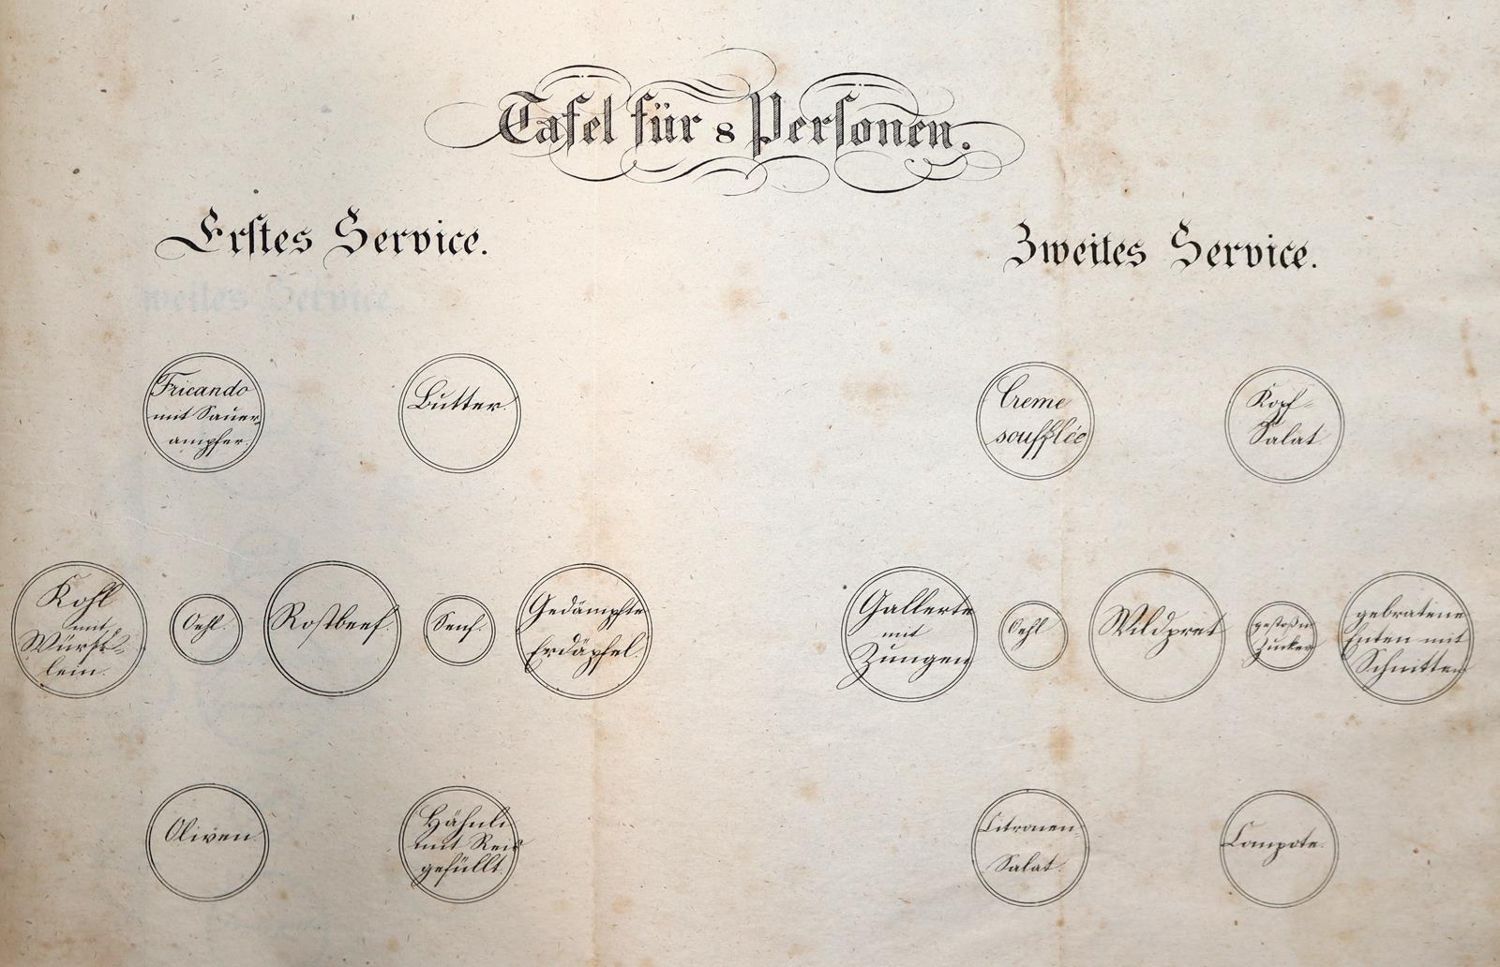 Tafel für 8 Personen.
Erstes Service.
Fricando
mit Sauer
ampfer.
Butter.
Kohl
mit
Würst-
lein.
Oehl.
Rostbeef.
Senf.
Gedämpfte
Erdäpfel.
Oliven.
Hähnli
mit Reis
gefüllt.
Zweites Service.
Creme
soufflée
Kopf-
Salat.
Gallerte
mit
Zungen
Oehl
Wildpret
gestoßn
Zucker
gebratene
Enten mit
Schnitten
Citronen-
Salat.
Compote.
weites Service.